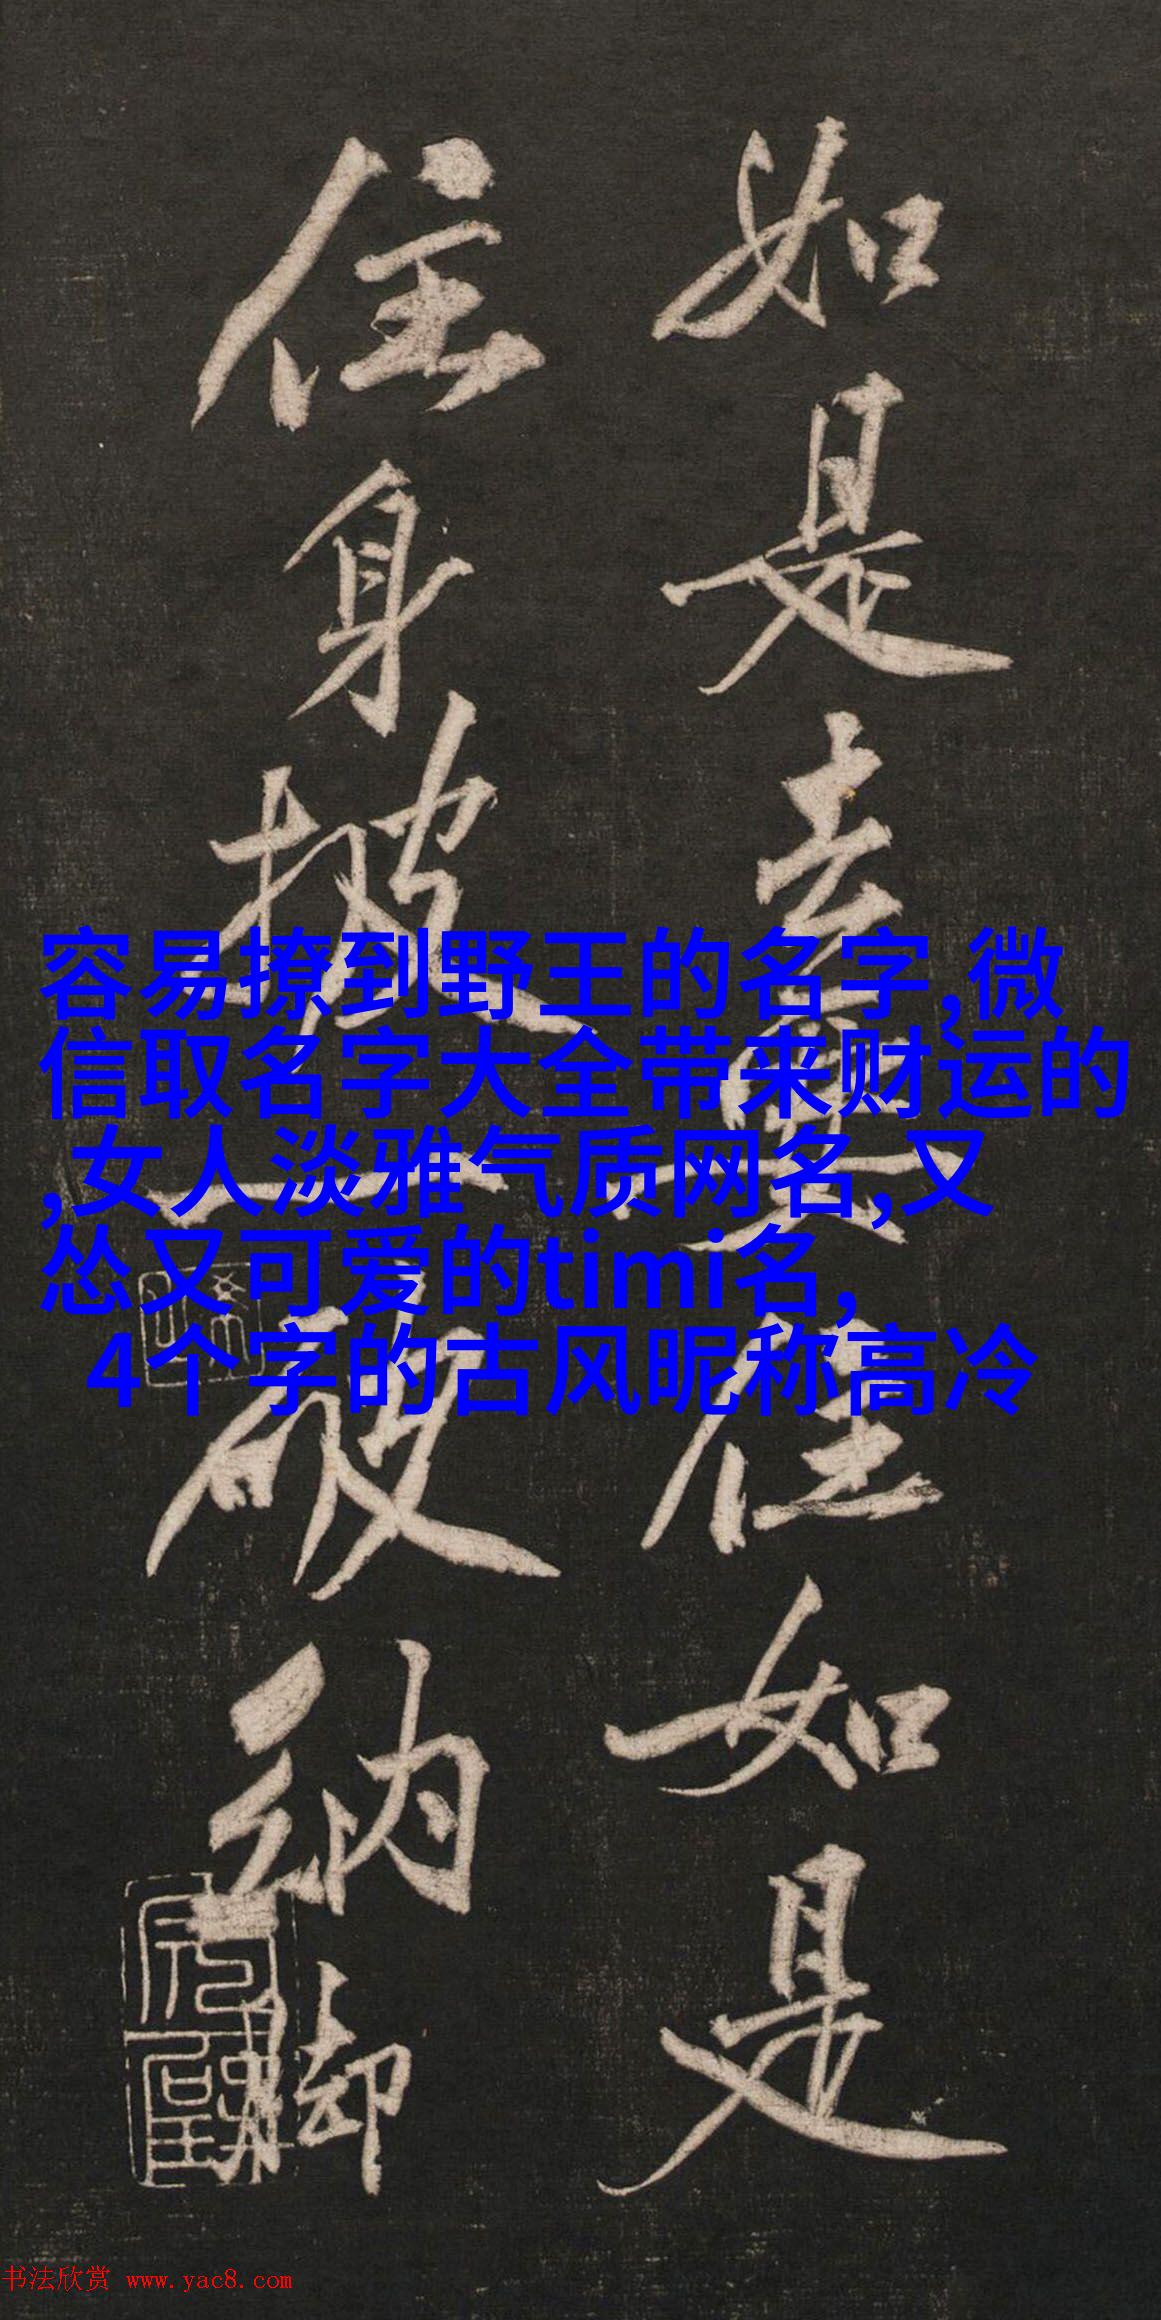 如是住如是
住身披一破納脚
容易撩到野王的名字,微
信取名字大全带来财运的
,女人淡雅气质网名,又
怂又可爱的timi名,
4个字的古风昵称高冷
书法欣赏 www.yac8.com